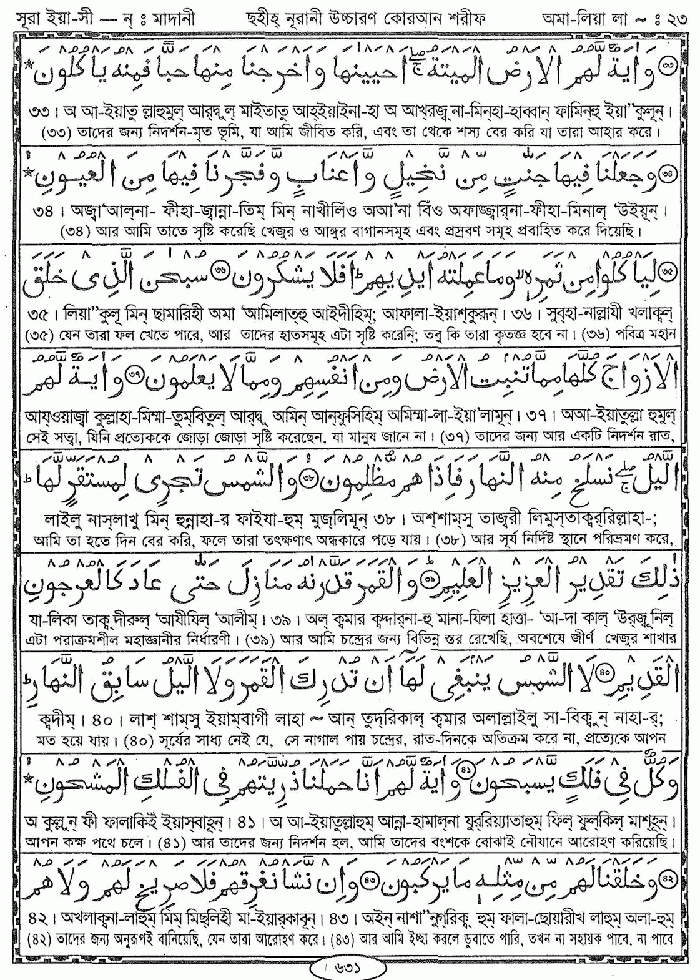 সূরা ইয়া-সী — ন্ : মাদানী ছ্বহীহ্ নূরানী উচ্চারণ কোরআন শরীফ অমা-লিয়া লা ~ : ২৩
وَاٰيَةٌ لَّهُمُ الْاَرْضُ الْمَيْتَةُ ۚ اَحْيَيْنٰهَا وَاَخْرَجْنَا مِنْهَا حَبًّا فَمِنْهُ يَاْكُلُوْنَ *
৩৩। অ আ-ইয়াতু ল্লাহুমুল্ আর্দ্বুল্ মাইতাতু আহ্ইয়াইনা-হা অ আখ্রজ্ব্না-মিন্হা-হাব্বান্ ফামিন্হু ইয়া"কুলূন্।
(৩৩) তাদের জন্য নিদর্শন-মৃত ভূমি, যা আমি জীবিত করি, এবং তা থেকে শস্য বের করি যা তারা আহার করে।
وَجَعَلْنَا فِيْهَا جَنّٰتٍ مِّنْ نَّخِيْلٍ وَّاَعْنَابٍ وَّفَجَّرْنَا فِيْهَا مِنَ الْعُيُوْنِ *
৩৪। অজ্বা'আল্না- ফীহা-জ্বান্না-তিম্ মিন্ নাখীলিঁও অআ'না বিঁও অফাজ্জ্বার্না-ফীহা-মিনাল্ 'উইয়ূন্।
(৩৪) আর আমি তাতে সৃষ্টি করেছি খেজুর ও আঙ্গুর বাগানসমূহ এবং প্রস্রবণ সমূহ প্রবাহিত করে দিয়েছি।
لِيَاْكُلُوْا مِنْ ثَمَرِهٖ ۙ وَمَا عَمِلَتْهُ اَيْدِيْهِمْ ؕ اَفَلَا يَشْكُرُوْنَ ۝ سُبْحٰنَ الَّذِىْ خَلَقَ
৩৫। লিয়া"কুলূ মিন্ ছামারিহী অমা 'আমিলাত্হু আইদীহিম্; আফালা-ইয়াশ্কুরূন্। ৩৬। সুব্হা-নাল্লাযী খলাক্বল্
(৩৫) যেন তারা ফল খেতে পারে, আর তাদের হাতসমূহ এটা সৃষ্টি করেনি; তবু কি তারা কৃতজ্ঞ হবে না। (৩৬) পবিত্র মহান
الْاَزْوَاجَ كُلَّهَا مِمَّا تُنْۢبِتُ الْاَرْضُ وَمِنْ اَنْفُسِهِمْ وَمِمَّا لَا يَعْلَمُوْنَ ۝ وَاٰيَةٌ لَّهُمُ
আয্ওয়াজ্বা কুল্লাহা-মিম্মা-তুম্বিতুল্ আর্দ্বু অমিন্ আন্ফুসিহিম্ অমিম্মা-লা-ইয়া'লামূন্। ৩৭। অআ-ইয়াতুল্লা হুমুল্
সেই সত্বা, যিনি প্রত্যেককে জোড়া জোড়া সৃষ্টি করেছেন, যা মানুষ জানে না। (৩৭) তাদের জন্য আর একটি নিদর্শন রাত,
الَّيْلُ ۖۚ نَسْلَخُ مِنْهُ النَّهَارَ فَاِذَا هُمْ مُّظْلِمُوْنَ ۝ وَالشَّمْسُ تَجْرِىْ لِمُسْتَقَرٍّ لَّهَا ؕ
লাইলু নাস্লাখু মিন্ হুন্নাহা-র ফাইযা-হুম্ মুজ্লিমূন্ ৩৮। অশ্শাম্সু তাজ্বরী লিমুস্তাক্বর্রিল্লাহা-;
আমি তা হতে দিন বের করি, ফলে তারা তৎক্ষণাৎ অন্ধকারে পড়ে যায়। (৩৮) আর সূর্য নির্দিষ্ট স্থানে পরিভ্রমণ করে,
ذٰلِكَ تَقْدِيْرُ الْعَزِيْزِ الْعَلِيْمِ ۝ وَالْقَمَرَ قَدَّرْنٰهُ مَنَازِلَ حَتّٰى عَادَ كَالْعُرْجُوْنِ
যা-লিকা তাক্ব্দীরুল্ 'আযীযিল্ 'আলীম্। ৩৯। অল্ ক্বমার ক্বদ্দার্না-হু মানা-যিলা হাত্তা- 'আ-দা কাল্ 'উর্জুনিল্
এটা পরাক্রমশীল মহাজ্ঞানীর নির্ধারণী। (৩৯) আর আমি চন্দ্রের জন্য বিভিন্ন স্তর রেখেছি, অবশেষে জীর্ণ খেজুর শাখার
الْقَدِيْمِ ۝ لَا الشَّمْسُ يَنْۢبَغِىْ لَهَاۤ اَنْ تُدْرِكَ الْقَمَرَ وَلَا الَّيْلُ سَابِقُ النَّهَارِ ؕ
ক্বদীম্। ৪০। লাশ্ শাম্সু ইয়াম্বাগী লাহা ~ আন্ তুদ্রিকাল্ ক্বমার অলাল্লাইলু সা-বিক্বুন্ নাহা-র্;
মত হয়ে যায়। (৪০) সূর্যের সাধ্য নেই যে, সে নাগাল পায় চন্দ্রের, রাত-দিনকে অতিক্রম করে না, প্রত্যেকে আপন
وَكُلٌّ فِىْ فَلَكٍ يَّسْبَحُوْنَ ۝ وَاٰيَةٌ لَّهُمْ اَنَّا حَمَلْنَا ذُرِّيَّتَهُمْ فِى الْفُلْكِ الْمَشْحُوْنِ *
অ কুল্লুন্ ফী ফালাকিইঁ ইয়াস্বাহূন্। ৪১। অ আ-ইয়াতুল্লাহুম্ আন্না-হামাল্না যুর্রিয়্যাতাহুম্ ফিল্ ফুল্কিল্ মাশ্হূন্।
আপন কক্ষ পথে চলে। (৪১) আর তাদের জন্য নিদর্শন হল, আমি তাদের বংশকে বোঝাই নৌযানে আরোহণ করিয়েছি।
وَخَلَقْنَا لَهُمْ مِّنْ مِّثْلِهٖ مَا يَرْكَبُوْنَ ۝ وَاِنْ نَّشَاْ نُغْرِقْهُمْ فَلَا صَرِيْخَ لَهُمْ وَلَا هُمْ
৪২। অখলাক্ব্না-লাহুম্ মিম্ মিছ্লিহী মা-ইয়ার্কাবূন্। ৪৩। অইন্ নাশা"নুগ্রিক্ব্ হুম্ ফালা-ছোয়ারীখ লাহুম্ অলা-হুম্
(৪২) তাদের জন্য অনুরূপই বানিয়েছি, যেন তারা আরোহণ করে। (৪৩) আর আমি ইচ্ছা করলে ডুবাতে পারি, তখন না সহায়ক পাবে, না পাবে
৬৩১